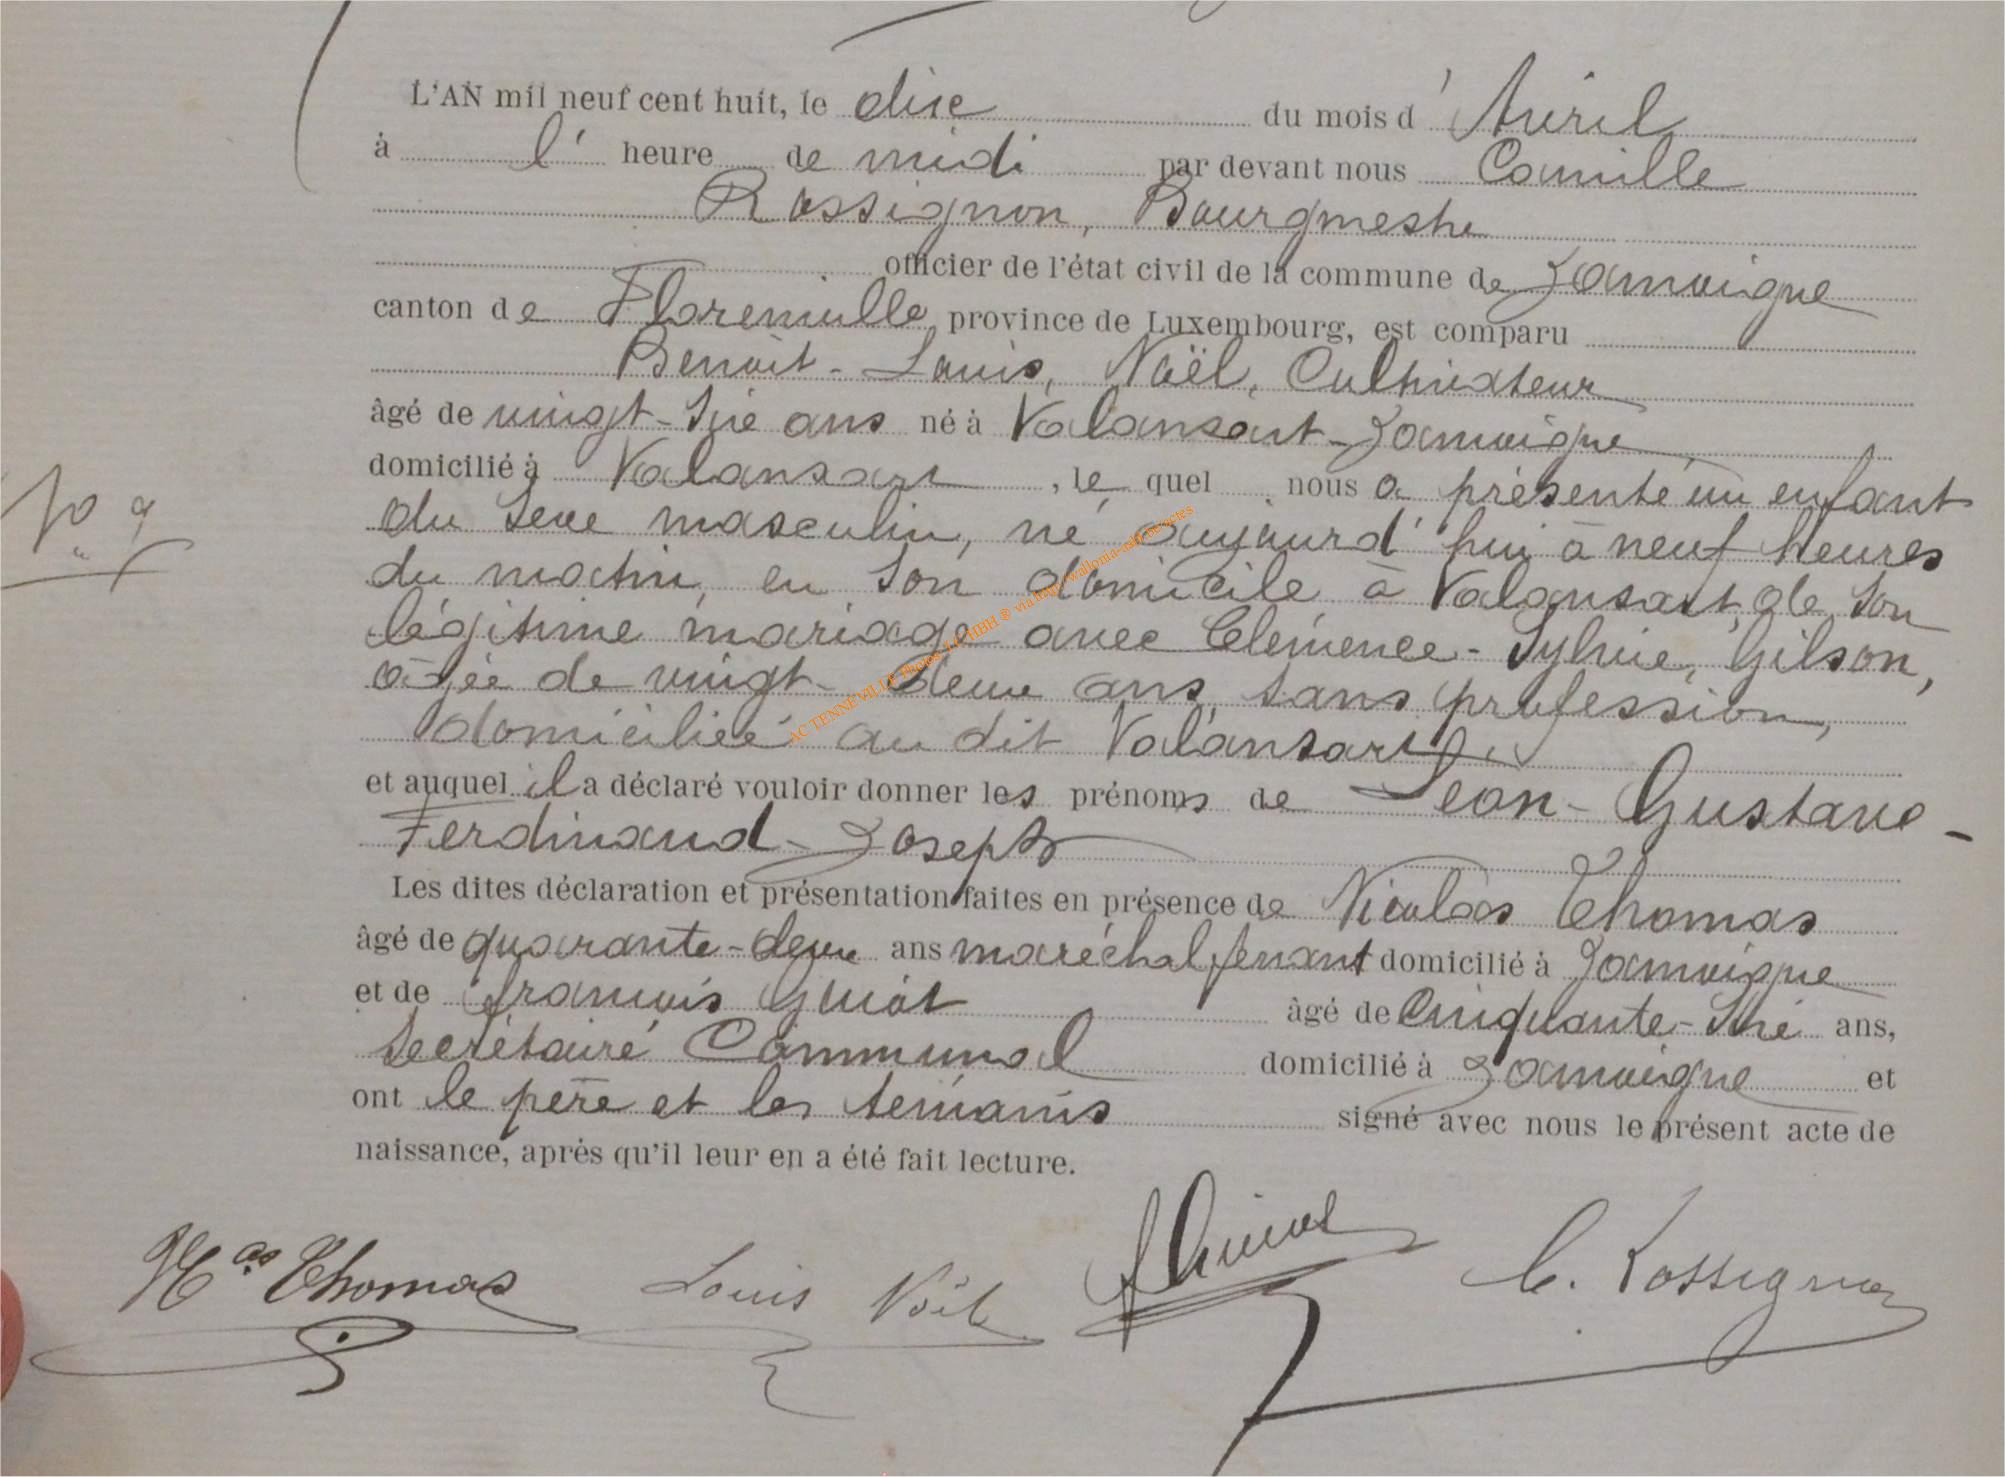 L'AN mil neuf cent huit, le dix du mois d' Avril
à l' heure de midi par devant nous Camille
Rossignon, Bourgmestre
officier de l'état civil de la commune de Jamoigne
canton de Florenville province de Luxembourg, est comparu
Benoit-Louis, Noël, Cultivateur
âgé de vingt-six ans né à Valansart-Jamoigne
domicilié à Valansart, le quel nous a présenté un enfant
No 9
du sexe masculin, né aujourd'hui à neuf heures
du matin, en son domicile à Valansart, de son
légitime mariage avec Clémence-Sylvie, Gilson,
âgée de vingt-deux ans, sans profession,
domiciliée au dit Valansart
AC TENNEVILLE Photos
et auquel il a déclaré vouloir donner les prénoms de Léon-Gustave-
Ferdinand-Joseph
Les dites déclaration et présentation faites en présence de Nicolas Thomas
âgé de quarante-deux ans maréchal ferrant domicilié à Jamoigne
et de François Guiot âgé de Cinquante-six ans,
Secrétaire Communal domicilié à Jamoigne et
ont le père et les témoins signé avec nous le présent acte de
naissance, après qu'il leur en a été fait lecture.
Nas Thomas Louis Noël C. Rossignon